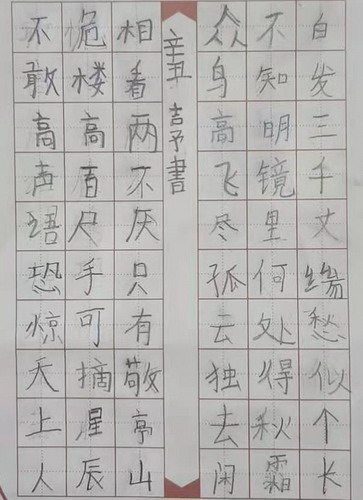 白发三千丈缘愁似个长
不知明镜里何处得秋霜
众鸟高飞尽孤云独去闲
辛丑 吉予書
相看两不厌只有敬亭山
危楼高百尺手可摘星辰
不敢高声语恐惊天上人